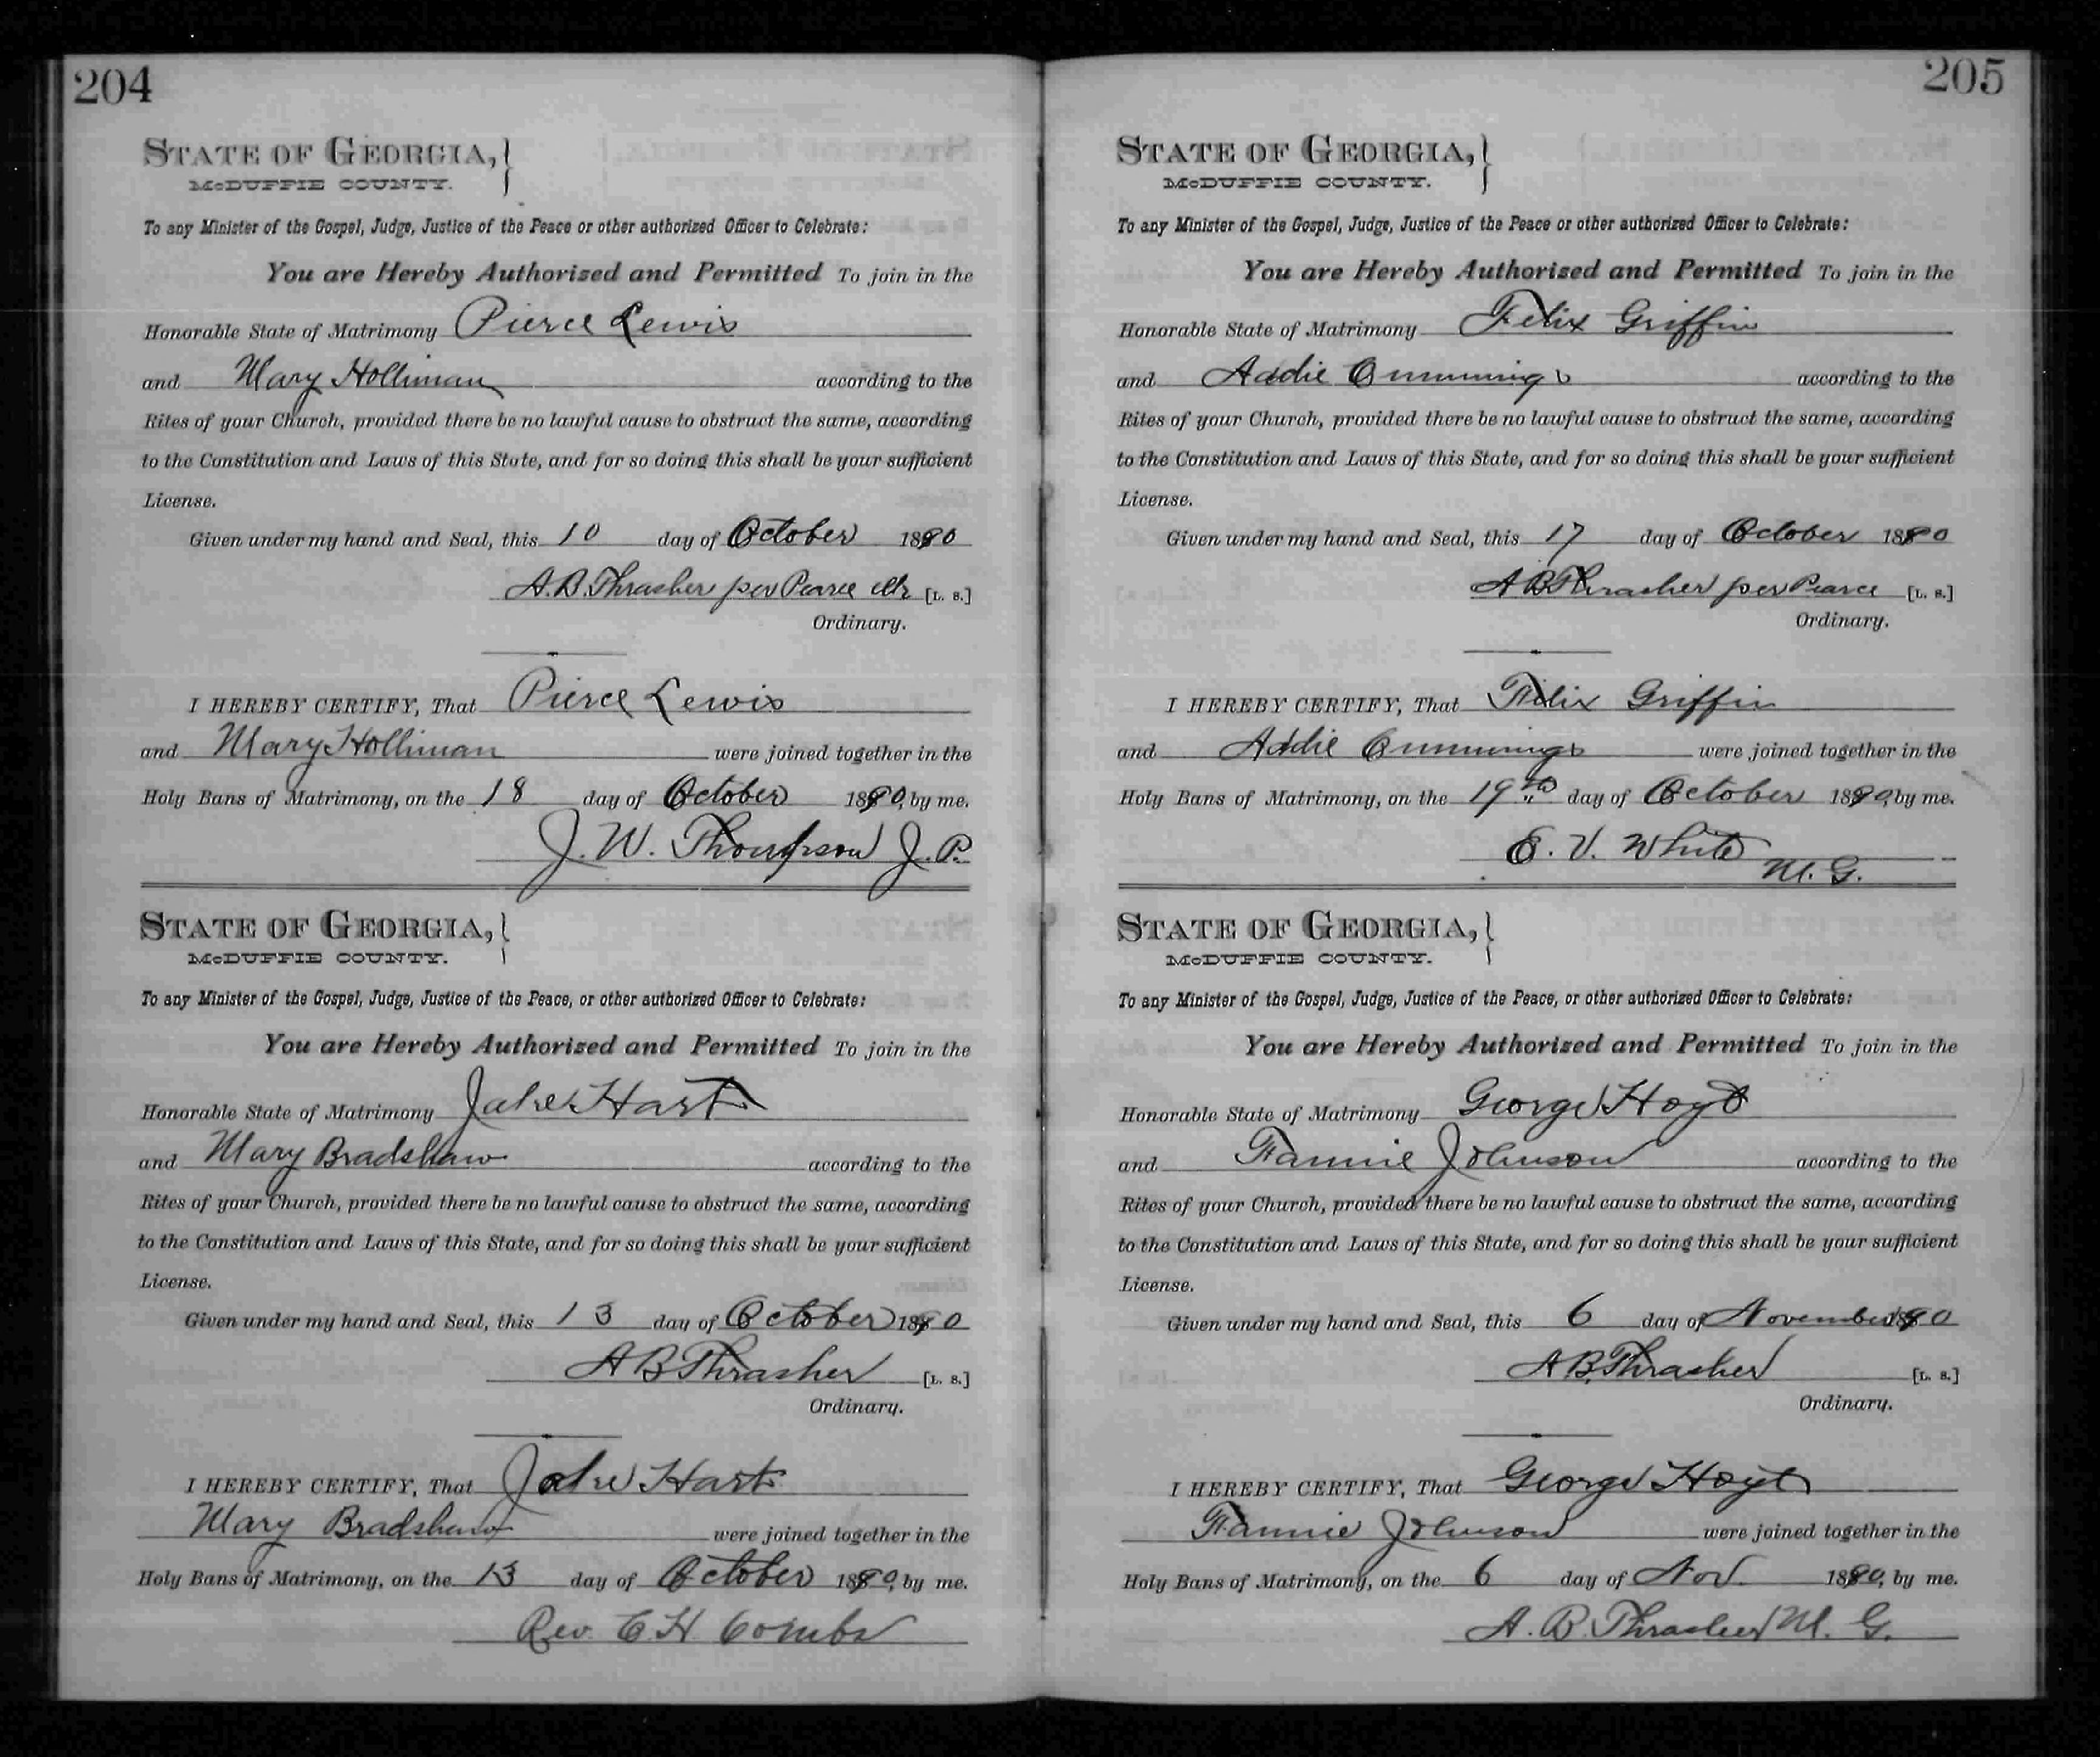 204
STATE OF GEORGIA,
McDUFFIE COUNTY.
To any Minister of the Gospel, Judge, Justice of the Peace or other authorized Officer to Celebrate:
You are Hereby Authorized and Permitted To join in the
Honorable State of Matrimony Pierce Lewis
and Mary Holliman according to the
Rites of your Church, provided there be no lawful cause to obstruct the same, according
to the Constitution and Laws of this State, and for so doing this shall be your sufficient
License.
Given under my hand and Seal, this 10 day of October 1890
A. B. Thrasher per Pearce Clk [L. S.]
Ordinary.
I HEREBY CERTIFY, That Pierce Lewis
and Mary Holliman were joined together in the
Holy Bans of Matrimony, on the 18 day of October 1890, by me.
J. W. Thompson J. P.
STATE OF GEORGIA,
McDUFFIE COUNTY.
To any Minister of the Gospel, Judge, Justice of the Peace, or other authorized Officer to Celebrate:
You are Hereby Authorized and Permitted To join in the
Honorable State of Matrimony Jake Hart
and Mary Bradshaw according to the
Rites of your Church, provided there be no lawful cause to obstruct the same, according
to the Constitution and Laws of this State, and for so doing this shall be your sufficient
License.
Given under my hand and Seal, this 13 day of October 1890
A B Thrasher [L. S.]
Ordinary.
I HEREBY CERTIFY, That Jake Hart
Mary Bradshaw were joined together in the
Holy Bans of Matrimony, on the 13 day of October 1890, by me.
Rev. C H Combs
205
STATE OF GEORGIA,
McDUFFIE COUNTY.
To any Minister of the Gospel, Judge, Justice of the Peace or other authorized Officer to Celebrate:
You are Hereby Authorized and Permitted To join in the
Honorable State of Matrimony Felix Griffin
and Addie Cummings according to the
Rites of your Church, provided there be no lawful cause to obstruct the same, according
to the Constitution and Laws of this State, and for so doing this shall be your sufficient
License.
Given under my hand and Seal, this 17 day of October 1890
A B Thrasher per Pearce [L. S.]
Ordinary.
I HEREBY CERTIFY, That Felix Griffin
and Addie Cummings were joined together in the
Holy Bans of Matrimony, on the 19th day of October 1890, by me.
E. V. White
M. G.
STATE OF GEORGIA,
McDUFFIE COUNTY.
To any Minister of the Gospel, Judge, Justice of the Peace, or other authorized Officer to Celebrate:
You are Hereby Authorized and Permitted To join in the
Honorable State of Matrimony George Hoyt
and Fannie Johnson according to the
Rites of your Church, provided there be no lawful cause to obstruct the same, according
to the Constitution and Laws of this State, and for so doing this shall be your sufficient
License.
Given under my hand and Seal, this 6 day of November 1890
A. B. Thrasher [L. S.]
Ordinary.
I HEREBY CERTIFY, That George Hoyt
Fannie Johnson were joined together in the
Holy Bans of Matrimony, on the 6 day of Nov. 1890, by me.
A. B. Thrasher M. G.